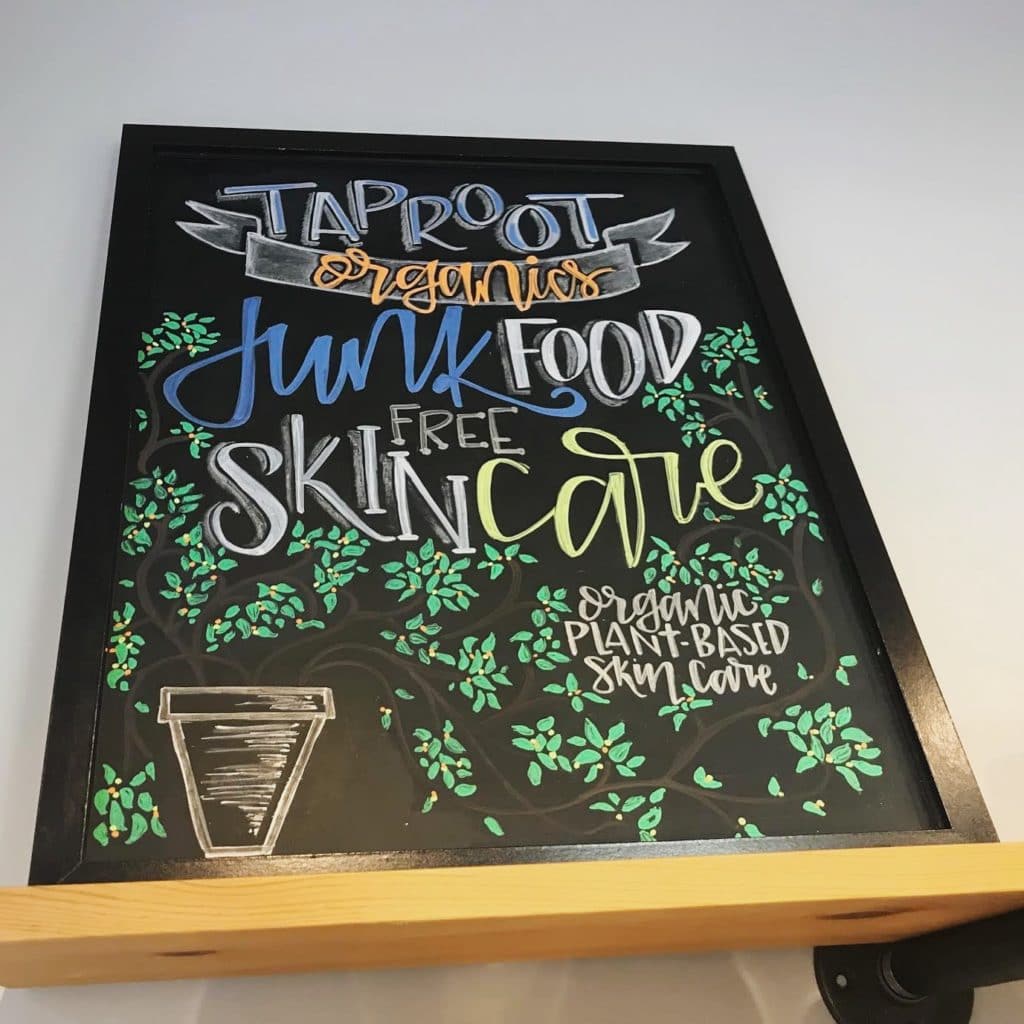 TAPROOT
organics
Junk FOOD
FREE
SKINCare
organic
PLANT-BASED
Skin Care